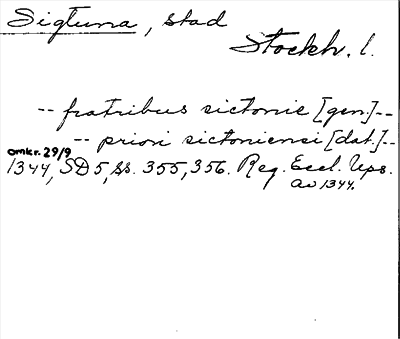 Sigtuna, stad
Stockh. l.
-- fratribus sictonie [gen.]--
-- priori sictoniensi [dat.]--
omkr. 29/9
1344, SD 5, ss. 355, 356. Reg. Eccl. Ups.
av 1344.